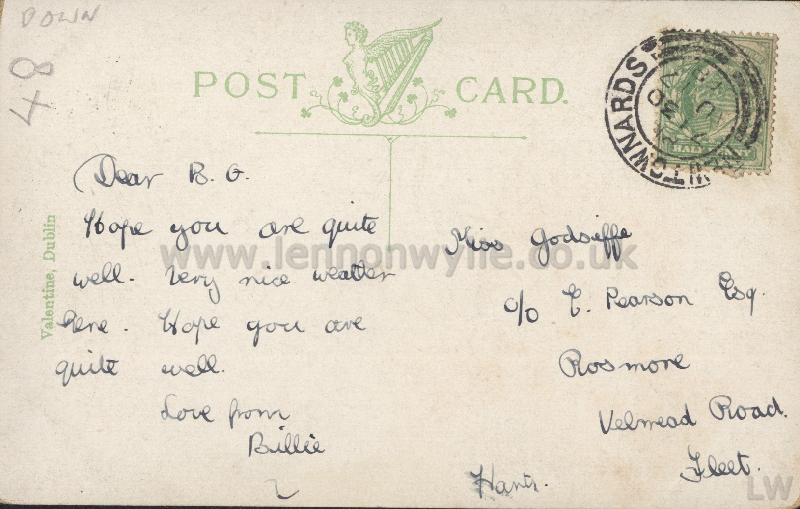 DOWN
48
POST CARD.
NEWTOWNARDS
HALF
Valentine, Dublin
Dear B. G.
Hope you are quite
well. Very nice weather
here. Hope you are
quite well.
Love from
Billie
Miss Godsiffe
c/o E. Pearson Esq.
Rosmore
Velmead Road.
Fleet.
Hants.
www.lennonwylie.co.uk
LW